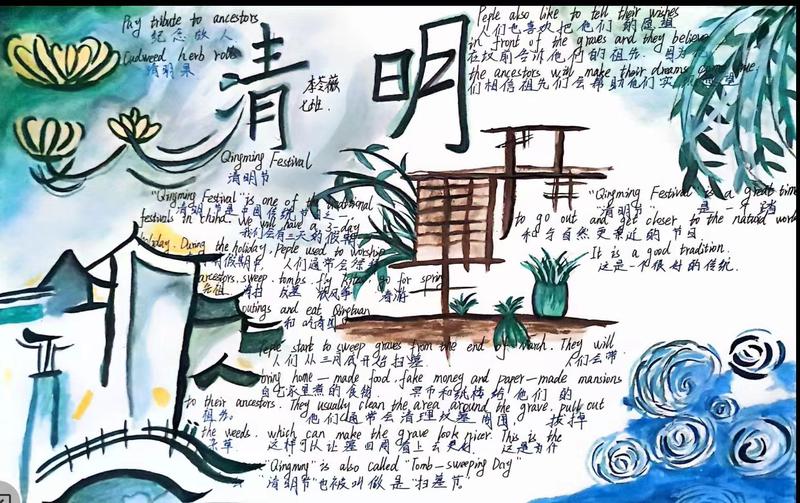 Pay tribute to ancestors
纪念故人
Cudweed herb rolls
清明果
清明
李苓薇
七班
Peple also like to tell their wishes
人们也喜欢把他们的愿望
in front of the graves and they believe
在坟前告诉他们的祖先.
the ancestors will make their dreams come true.
们相信祖先们会帮助他们实现
Qingming Festival
清明节
"Qingming Festival" is one of the traditional
清明节是中国传统节日之一,
festival in China. We will have a 3-day
我们会有三天的假期
holiday. During the holiday, Peple used to worship
假期, 人们通常会
ancestors, sweep tombs, fly kites, go for spring
先祖, 扫墓 放风筝 春游
outings and eat Qingtuan
和吃青团
"Qingming Festival is a great time
清明节" 是一个
to go out and get closer to the natural world
和与自然更亲近的节日
It is a good tradition.
这是一个很好的传统.
Peple start to sweep graves from the end of March. They will
人们从三月底开始扫墓 人们会带
bring home-made food, fake money and paper-made mansions
自己家里煮的食物, 冥币和纸 给他们的
to their ancestors. They usually clean the area around the grave, pull out
祖先. 他们通常会清理坟墓周围, 拔掉
the weeds, which can make the grave look nicer. This is the
杂草, 这样可以让墓四周看上去更好, 这是为什
"Qingming" is also called "Tomb-sweeping Day"
"清明节"也被叫做是"扫墓节"